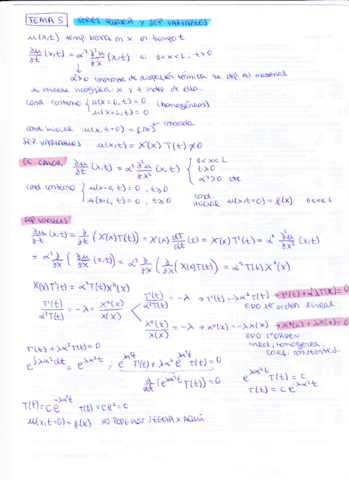 TEMA 5 SERIES FOURIER Y SEP. VARIABLES
u(x,t) temp barra en x en tiempo t
∂u/∂t (x,t) = α² ∂²u/∂x (x,t) si 0<x<L, t>0
α>0 constante de disipación térmica se dep. del material
cond. contorno { u(x=0,t) = 0 (homogéneas)
u(x=L,t) = 0
cond. inicial u(x,t=0) = f(x) conocida
SEP. VARIABLES u(x,t) = X(x) T(t) ≠ 0
EC CALOR ∂u/∂t (x,t) = α² ∂²u/∂x² (x,t) { 0<x<L
t>0
α²>0 cte
cond. contorno { u(x=0,t) = 0, t≥0
u(x=L,t) = 0, t≥0
cond. inicial u(x,t=0) = f(x) 0<x<L
SEP. VARIABLES
∂u/∂t (x,t) = ∂/∂t (X(x)T(t)) = X(x) dT/dt (t) = X(x) T'(t) = α² ∂²u/∂x² (x,t)
= α² ∂/∂x (∂u/∂x (x,t)) = α² ∂/∂x (∂/∂x (X(x)T(t))) = α² T(t) X''(x)
X(x)T'(t) = α²T(t)X''(x)
T'(t)/α²T(t) = -λ = X''(x)/X(x)
T'(t)/α²T(t) = -λ → T'(t) = -λα²T(t) → T'(t) + α²λT(t) = 0
EDO 1er orden lineal
X''(x)/X(x) = -λ → X''(x) = -λX(x) → X''(x) + λX(x) = 0
EDO 2º ORDEN
lineal, homogénea
coef. constantes.
T'(t) + λα²T(t) = 0
e^∫λα²dt = e^λα²t, e^λα²t T'(t) + λα² e^λα²t T(t) = 0
d/dt (e^λα²t T(t)) = 0
e^λα²t T(t) = C
T(t) = C e^-λα²t
T(t) = C e^-λα²t T(0) = Ce⁰ = C
u(x,t=0) = f(x) NO PODEMOS SEGUIR X AQUÍ